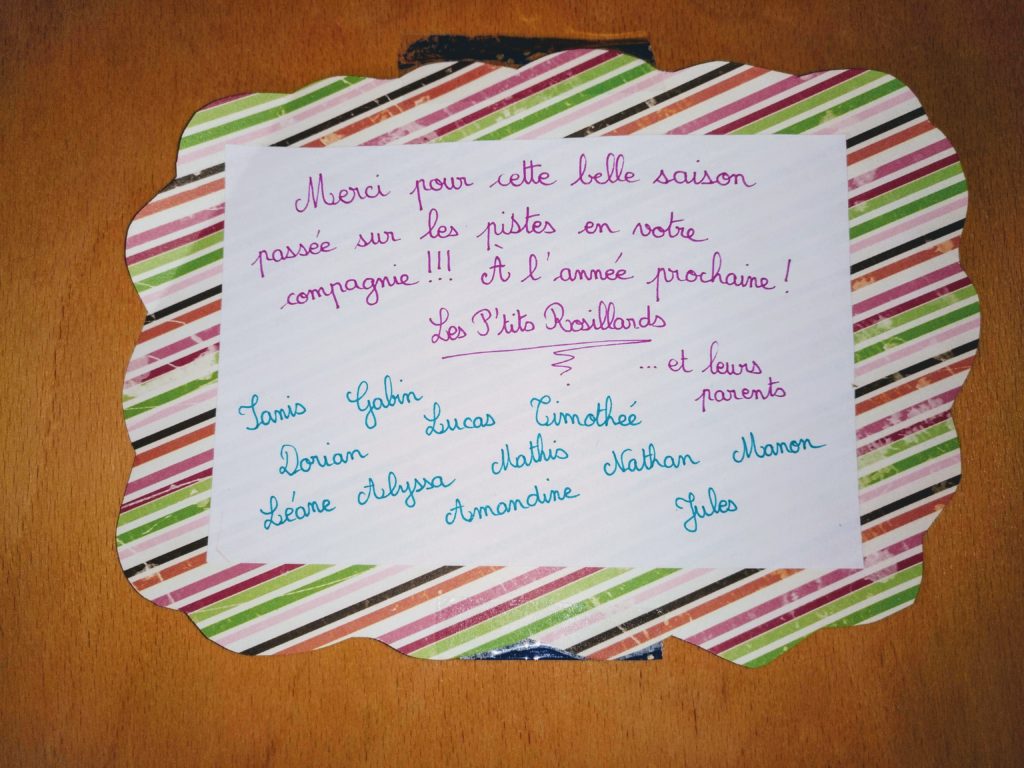 Merci pour cette belle saison
passée sur les pistes en votre
compagnie!!! À l'année prochaine!
Les P'tits Rosillards
... et leurs
parents
Ianis Gabin Lucas Timotheé
Dorian Mathis Nathan Manon
Léane Alyssa Amandine Jules